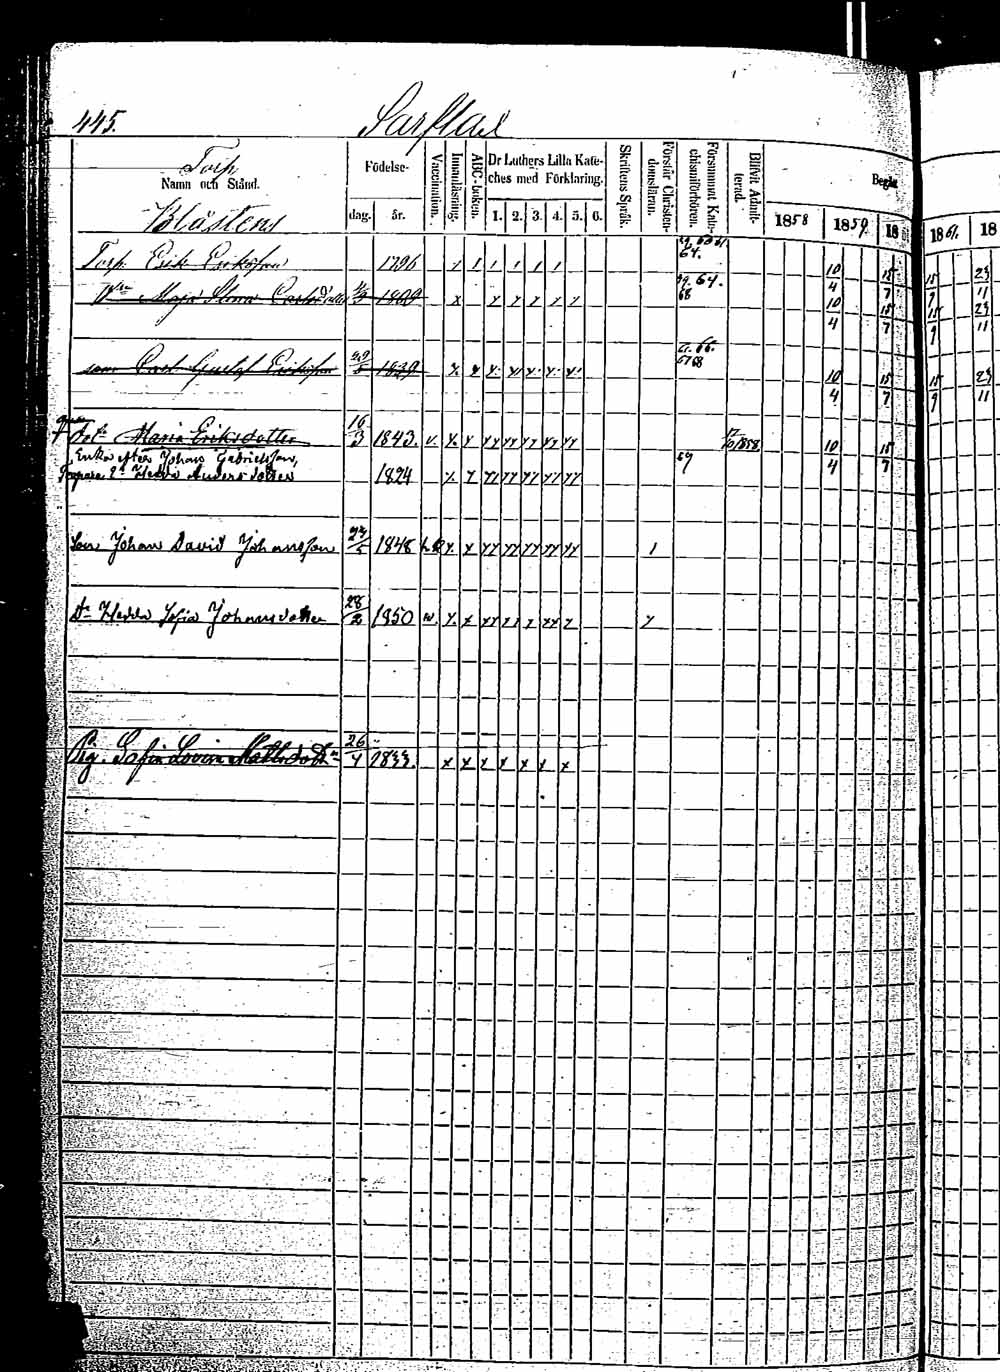 445.
Sarflax
Torp
Namn och Stånd.
Blåstens
Födelse-
dag. år.
Vaccination.
Innanläsning.
ABC-boken.
Dr Luthers Lilla Kate-
ches med Förklaring.
1. 2. 3. 4. 5. 6.
Skriftens Språk.
Förstår Christen-
domsläran.
Försummat Kate-
chismiförhören.
Blifvit Admit-
terad.
Begått
1858 1859. 18
1861. 18
Torp. Erik Eriksson 1796
64. 10/4 15/7 15/9 23/11
Maja Carlsdotter 1809 64. 68 10/4 15/7 15/9 23/11
son Carl Gustaf Eriksson 1839 66. 67 68 10/4 15/7 15/9 23/11
Maria Eriksdotter 16/3 1843. v. 1858 10/4 15/7
Enka efter Johan Gabrielsson,
Hedda Andersdotter 1824 69
Son Johan David Johansson 1848
Dr Hedda Sofia Johansdotter 28/2 1850
Pig. Sofia Lovisa Mattsdotter 26/4 1833.